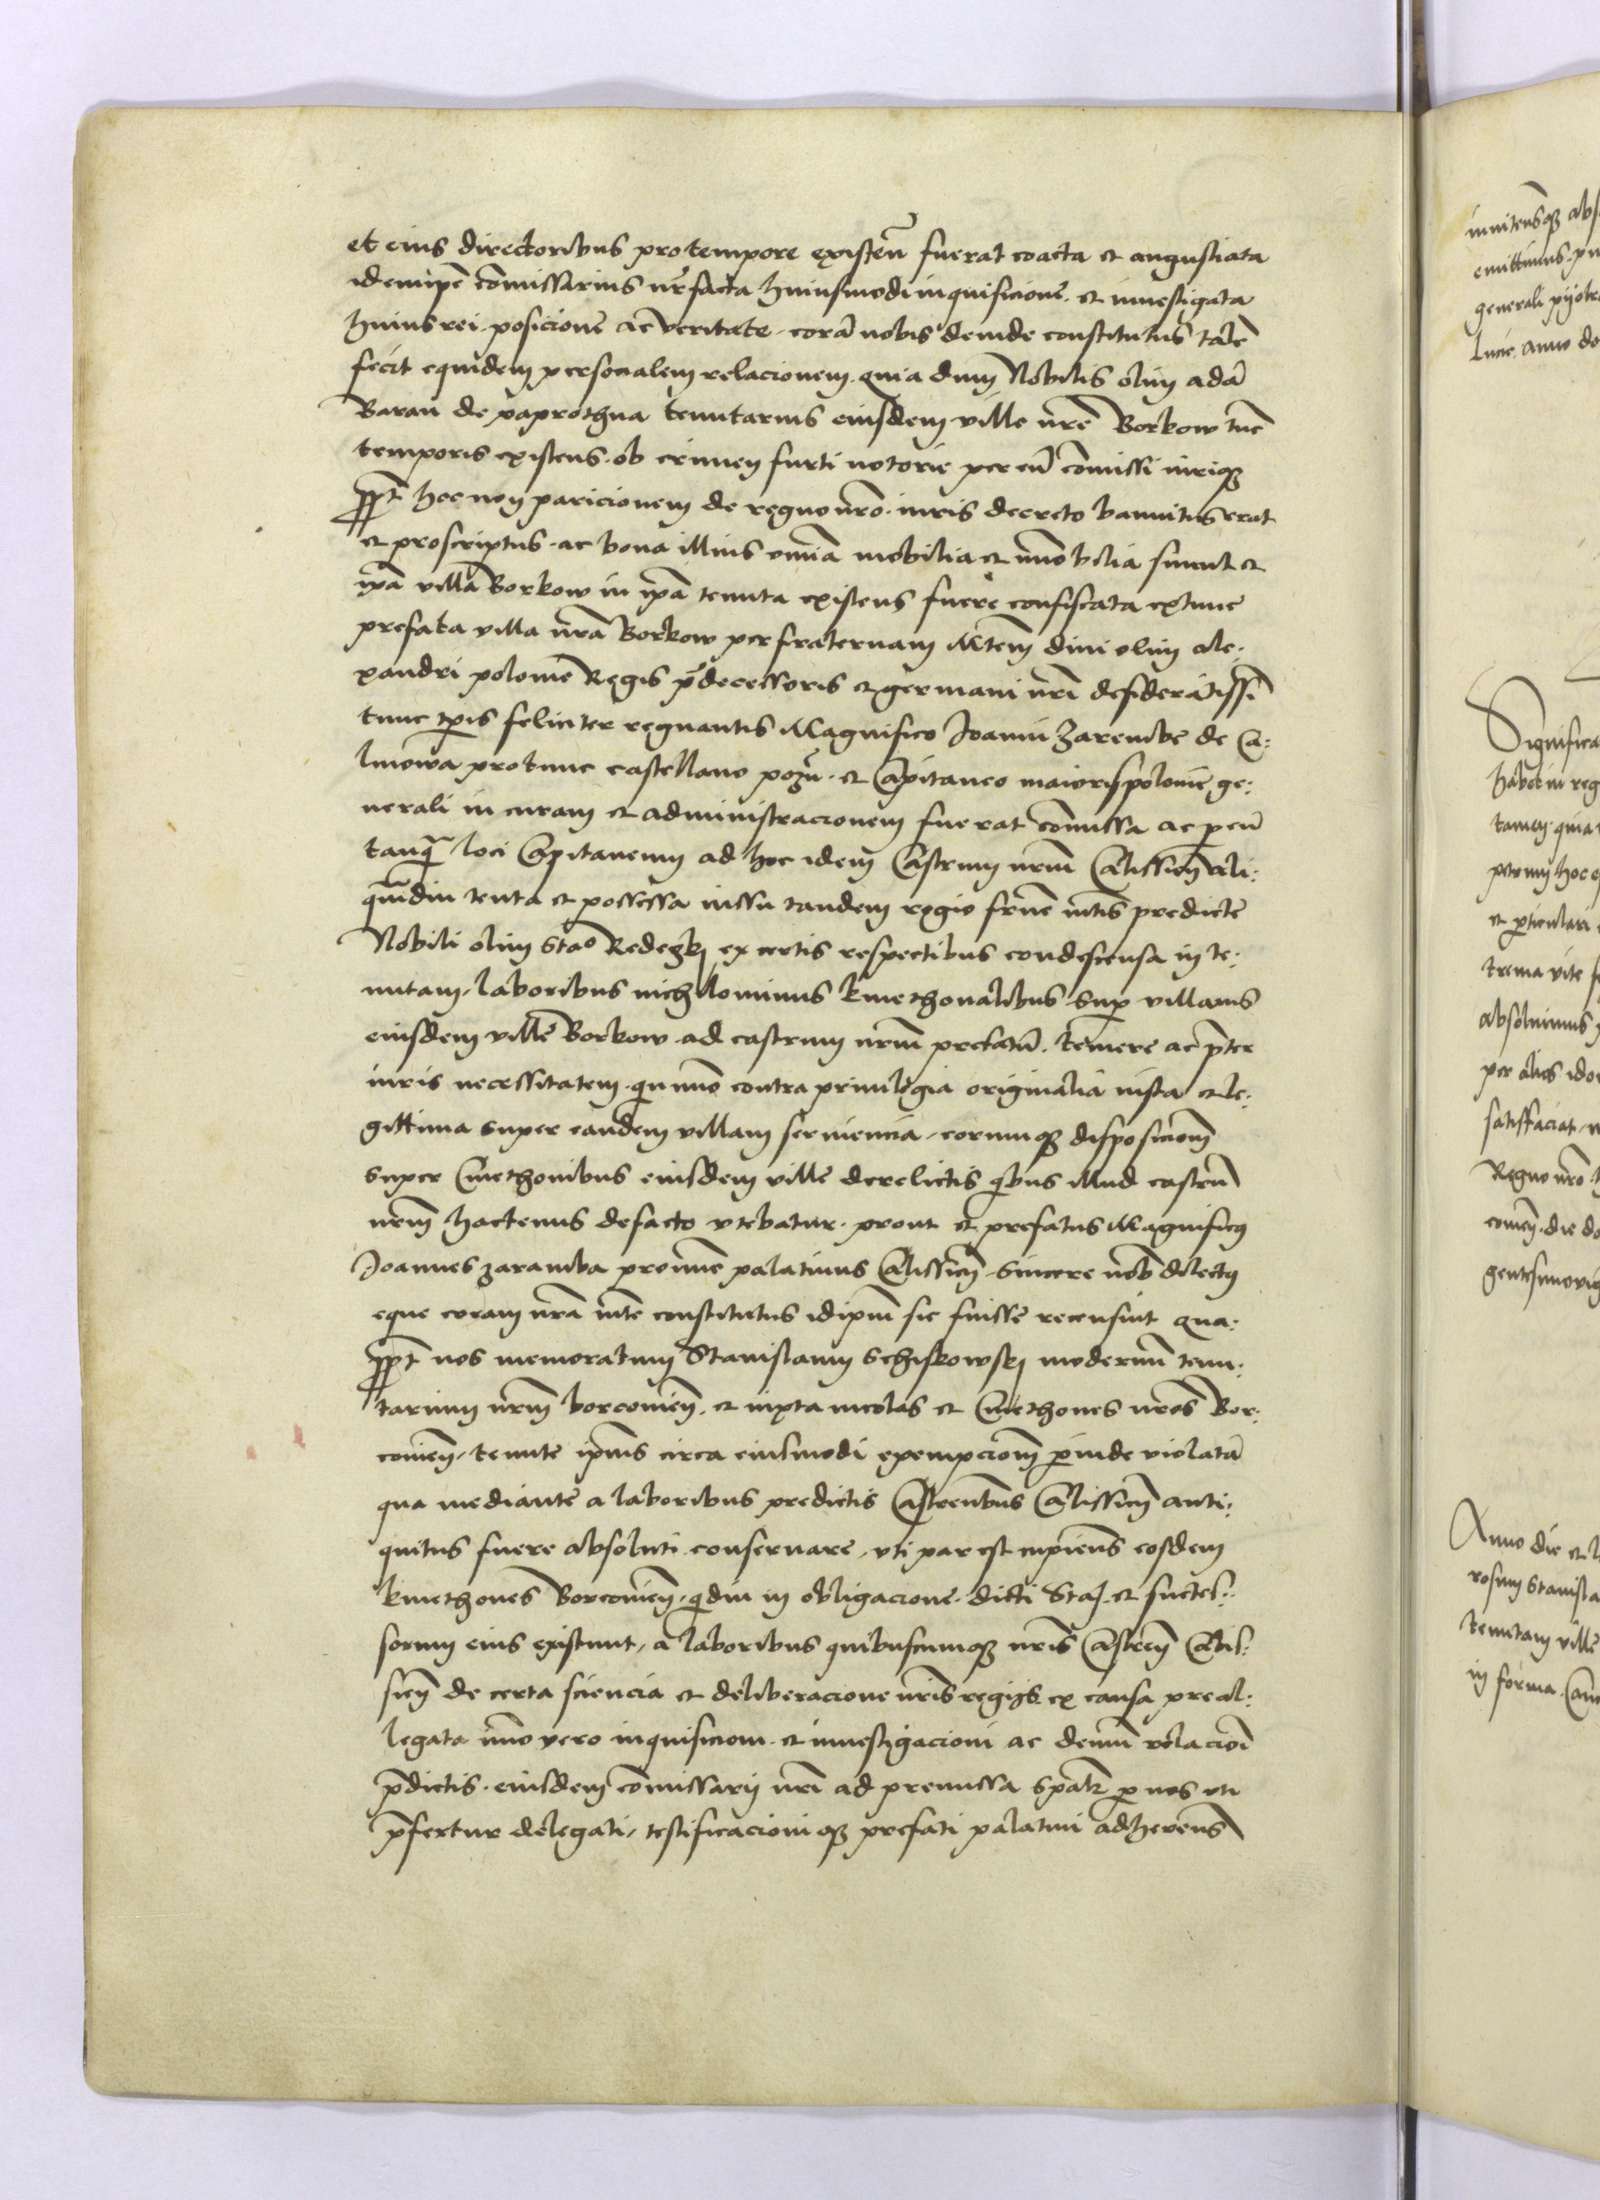 et eius directoribus protempore existeñ fuerat coacta et angustiata
idemipē cōmissarius nr̄ facta huiusmodi inquisicionē . et inuestigata
huius rei posicionē ac veritate . corā nobis deinde constitutus talē
fecit equidem personalem relacionem . quia dum Nobilis olim adā
Baran de paprothna tenutarius eiusdem ville nr̄e Borkow tūc
temporis existens . ob crimen furti notorie per eū cōmissi iurisq3
ppt̄ hoc non paricionem de regno nr̄o . iuris decreto bannitus erat
et proscriptus . ac bona illius om̄ia mobilia et īmobilia simul et
ip̄a villa Borkow in ip̄a tenuta existens fuere confiscata extunc
prefata villa nr̄a Borkow per fraternam M̄tem diui olim ale:
xandri polonie Regis p̄decessoris et germani nr̄i desideratissī
tunc tp̄is feliciter regnantis Magnifico Joanni Zarembe de Ca:
linowa protunc castellano pozn̄ . et Capitaneo maiorispolonie ge:
nerali in curam et administracionem fuerat cōmissa ac p eū
tanq̄ loci Capitaneum ad hoc idem Castrum nrm̄ Calissien̄ ali:
qm̄diu tenta et possessa iussu tandem regio frn̄e mtīs predicte
Nobili olim Stao Redeczkj ex certis respectibus condescensa in te:
nutam . laboribus nichilominus kmethonalibus sup villanis
eiusdem ville Borkow . ad castrum nrm̄ prefatū . temere ac p̄ter
iuris necessitatem . qn̄imo contra priuilegia originalia iusta et le:
gittima super eandem villam seruiencia . eorumq3 disposicionē
super Cmethonibus eiusdem ville derelictis qbus illud castrū
nrm̄ hactenus defacto vtebatur . prout et prefatus Magnificus
Joannes Zaramba pronunc palatinus Calissien̄ . Sincere nob̄ dilectus
eque coram nr̄a mt̄e constitutus idipm̄ sic fuisse recensuit qua:
ppt̄ nos memoratum Stanislaum Schiskowskj modernū tenu:
tarium nrm̄ borcouien̄ . et iuxta incolas et Cmethones nr̄os Bor:
couien̄ . tenute ip̄ius circa eiusmodi exempcionē proinde violatā
qua mediante a laboribus predictis Castrensibus Calissien̄ anti:
quitus fuere absoluti conseruare . vti par est cupiens eosdem
kmethones Borcouien̄ . q̄diu in obligacione . dicti Staj . et succes:
sorum eius existunt . a laboribus quibuscumq3 nr̄is Castren̄ Calis:
sien̄ de certa sciencia et deliberacione nr̄is regijs ex causa preal:
legata īmo vero inquisicioni . et inuestigacioni ac demū relacioī
p̄dictis . eiusdem cōmissarij nr̄i ad premissa spālr p nos vti
p̄fertur delegati . testificacioniq3 prefati palatini adherens

Significa
habet in reg
tamen . quia
et pticulari
absoluimus
satisfaciat
Regno nr̄o
Anno die et l
rosum Stanisla
tenutam ville
in forma . Can